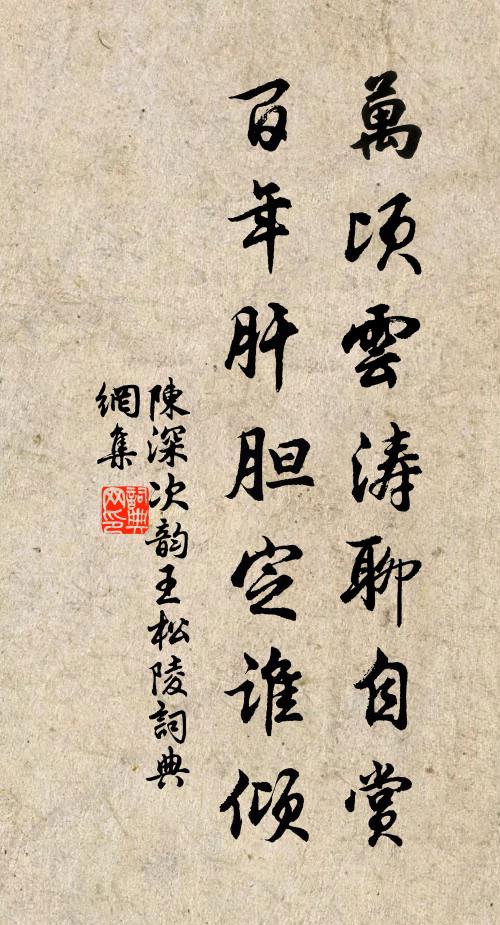 萬頃雲涛聊自賞
百年肝胆定谁倾
陳深次韵王松陵詞典
網集
詞典网印